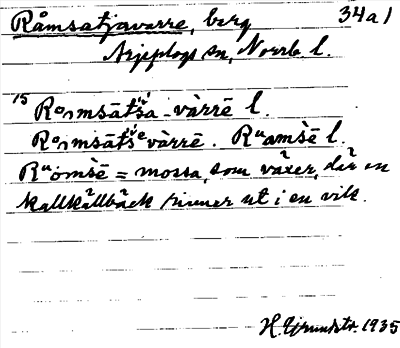 Råmsatjavarre, berg 34a1
Arjeplogs sn, Norrb. l.
15 Roₐmsāťša-vàrrē l.
Roₐmsāťšᵉvàrrē. Ruamšē l.
Ruomšē = mossa, som växer, där en
kallkällbäck rinner ut i en vik.
H. Grundstr. 1935